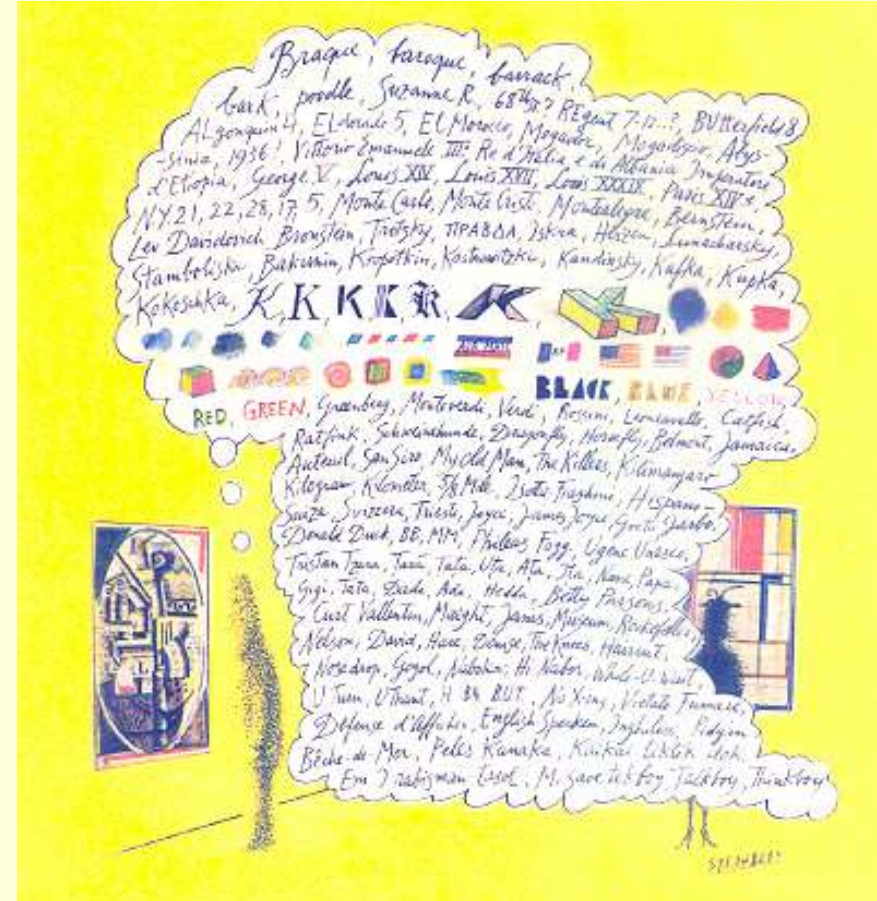 Braque, baroque, barrack,
bark, poodle, Suzanne R, 68th St? REgent 7-12..?, BUtterfield 8,
ALgonquin 4, ELdorado 5, El Morocco, Mogador, Mogadiscio, Abys-
-sinia, 1936!, Vittorio Emanuele III: Re d'Italia e di Albania Imperatore
d'Etiopia, George V, Louis XIV, Louis XVII, Louis XXXIX, Paris XIVe,
NY 21, 22, 28, 17, 5, Monte Carlo, Monte Cristo, Montealegre, Bernstein,
Lev Davidovich Bronstein, Trotzky, ПРАВДА, Iskra, Herzen, Lunacharsky,
Stamboliski, Bakunin, Kropotkin, Kostrowitzky, Kandinsky, Kafka, Kupka,
Kokoschka, K, K, K, K, K, K,
BLACK, BLUE, YELLOW,
RED, GREEN, Greenberg, Monteverdi, Verdi, Rossini, Leoncavallo, Catfish,
Ratfink, Schweinehunde, Dragonfly, Horsefly, Belmont, Jamaica,
Auteuil, San Siro, My Old Man, The Killers, Kilimanjaro
Kilogram, Kilometer, 5/8 Mile, Isotta Fraschini, Hispano-
Suiza, Svizzera, Trieste, Joyce, James Joyce, Greta Garbo,
Donald Duck, BB, MM, Phileas Fogg, Ugene Unesco,
Tristan Tzara, Tata, Uta, Ata, Ita, Nana, Papa,
Gigi, Tata, Dada, Ada, Hedda, Betty Parsons,
Curt Vallentin, Maeght, Janis, Museum, Rockefeller,
Nelson, David, Hare, The Knees, Harriet,
Nosedrop, Gogol, Nabokov, Hi Nabor, While-U-wait,
U Turn, U Thant, BUT, No X-ing, Vietato Fumare,
Défense d'Afficher, English Spoken, Pidgin
Bêche-de-Mer, Kanaka,
Talkboy, Thinkboy
STEINBERG